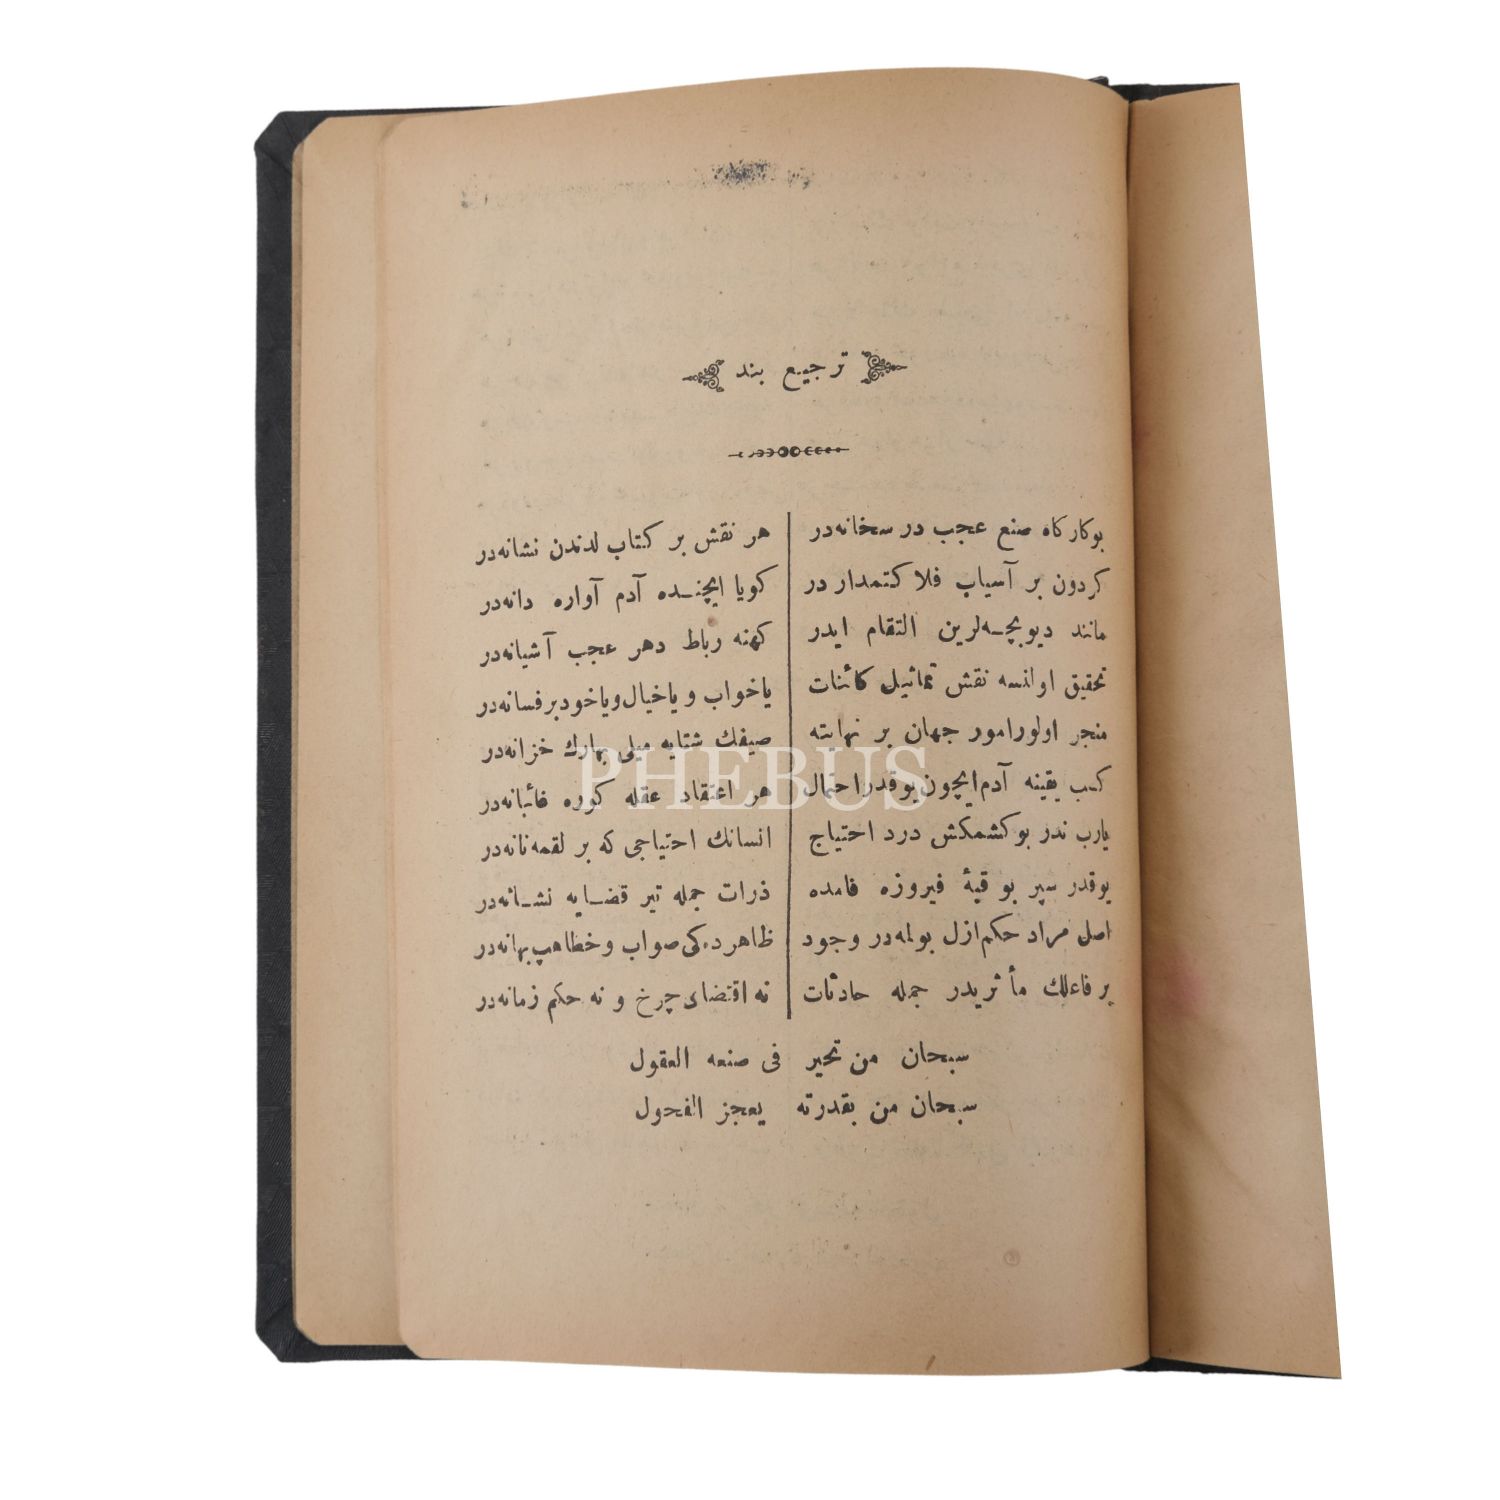 ترجیع بند
بو کارکاه صنع عجب درسخانه‌در هر نقش بر کتاب لدندن نشانه‌در
کردون بر آسیاب فلاکتمدار در کویا ایچنده آدم آواره دانه‌در
مانند دیو بچه‌لرین التقام ایدر کهنه رباط دهر عجب آشیانه‌در
تحقیق اولنسه نقش تماثیل کائنات یا خواب و یا خیال و یاخود بر فسانه‌در
منجر اولور امور جهان بر نهایته صیفك شتایه میلی بهارك خزانه‌در
کسب یقینه آدم ایچون یوقدر احتمال هر اعتقاد عقله کوره غائبانه‌در
یارب ندر بو کشمکش درد احتیاج انسانك احتیاجی که بر لقمه نانه‌در
یوقدر سپر بو قبهٔ فیروزه فامده ذرات جمله تیر قضایه نشانه‌در
اصل مراد حکم ازل بولمه‌در وجود ظاهرده‌کی صواب و خطا هپ بهانه‌در
بر فاعلك مأثریدر جمله حادثات نه اقتضای چرخ و نه حکم زمانه‌در
سبحان من تحیر فی صنعه العقول
سبحان من بقدرته یعجز الفحول
PHEBUS